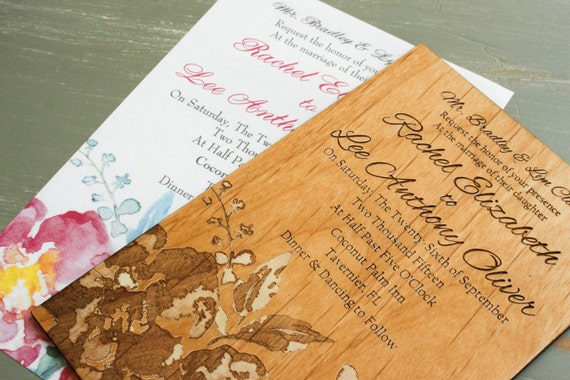 Mr. Bradley &
Request the honor of your
At the marriage of their
Rachel
to
Lee Anth
On Saturday, The Twe
Two Thousand
At Half Past
Coconut
Ta
Dinner
Mr. Bradley & Lyn
Request the honor of your presence
At the marriage of their daughter
Rachel Elizabeth
to
Lee Anthony Oliver
On Saturday The Twenty Sixth of September
Two Thousand Fifteen
At Half Past Five O'Clock
Coconut Palm Inn
Tavernier, FL
Dinner & Dancing to Follow